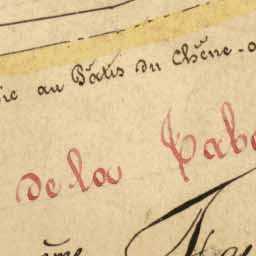 ie au Pâtis du Chêne-
de la Taba
ème